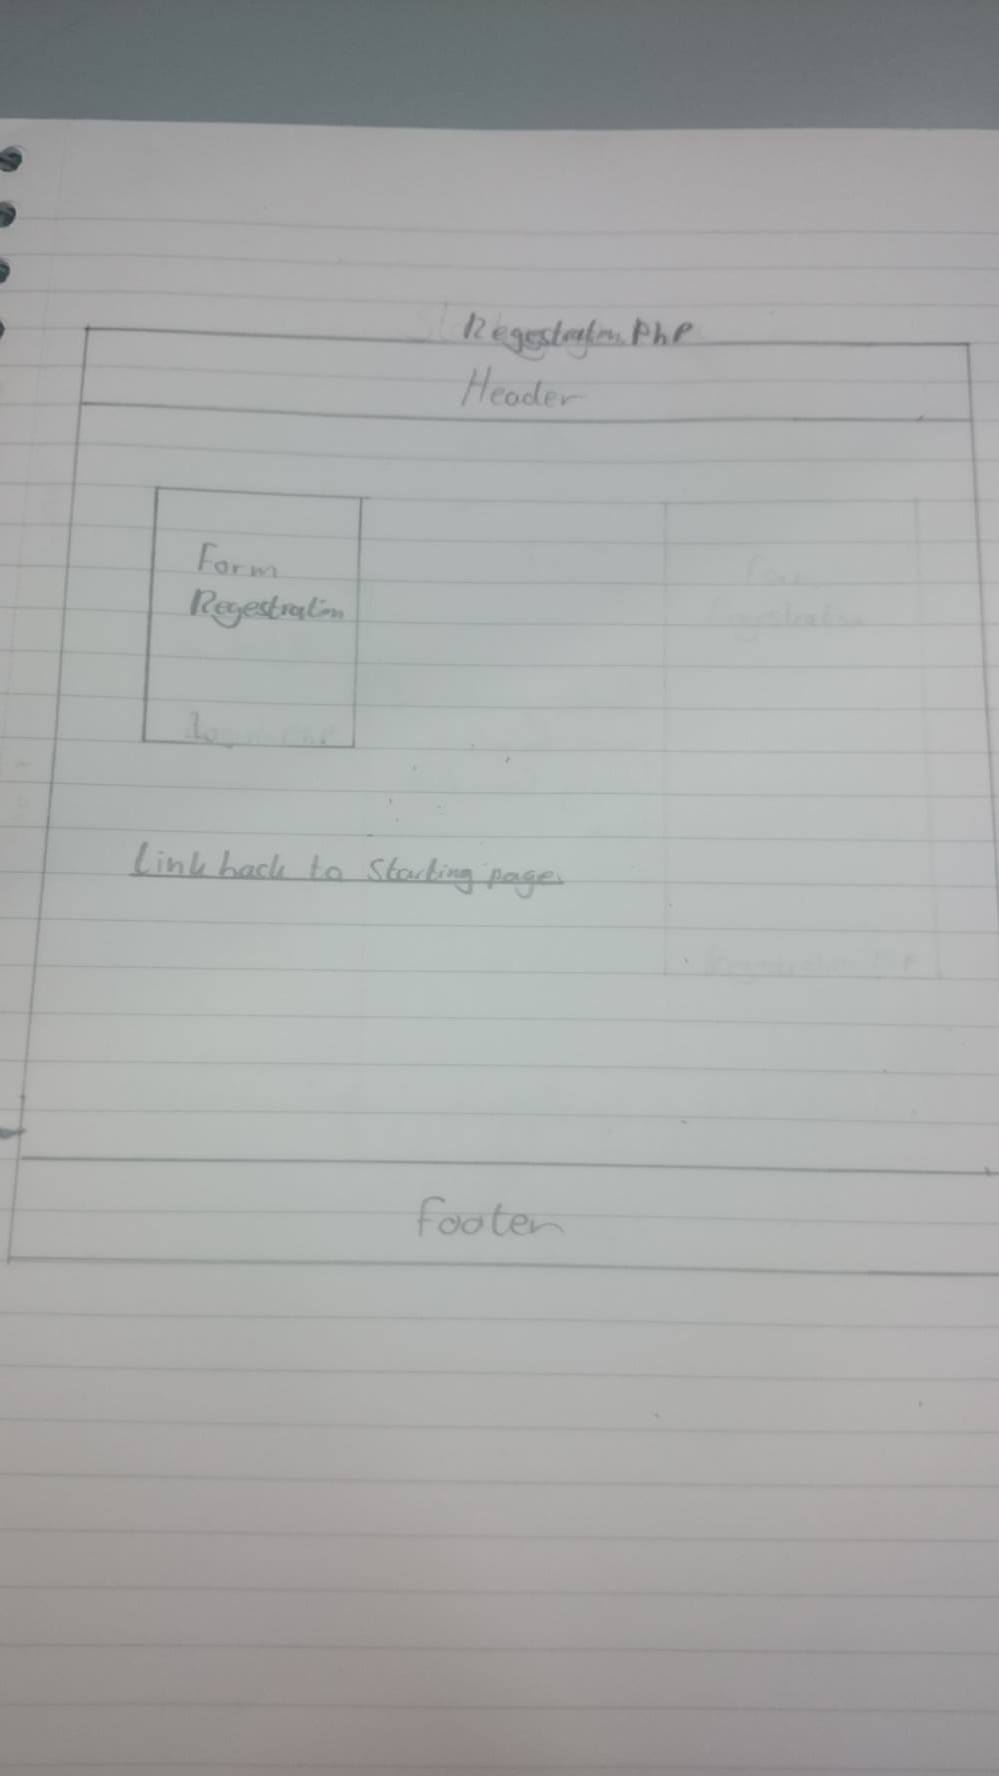 Regestration.PhP
Header
Form
Regestration
Link back to Starting page.
Footer